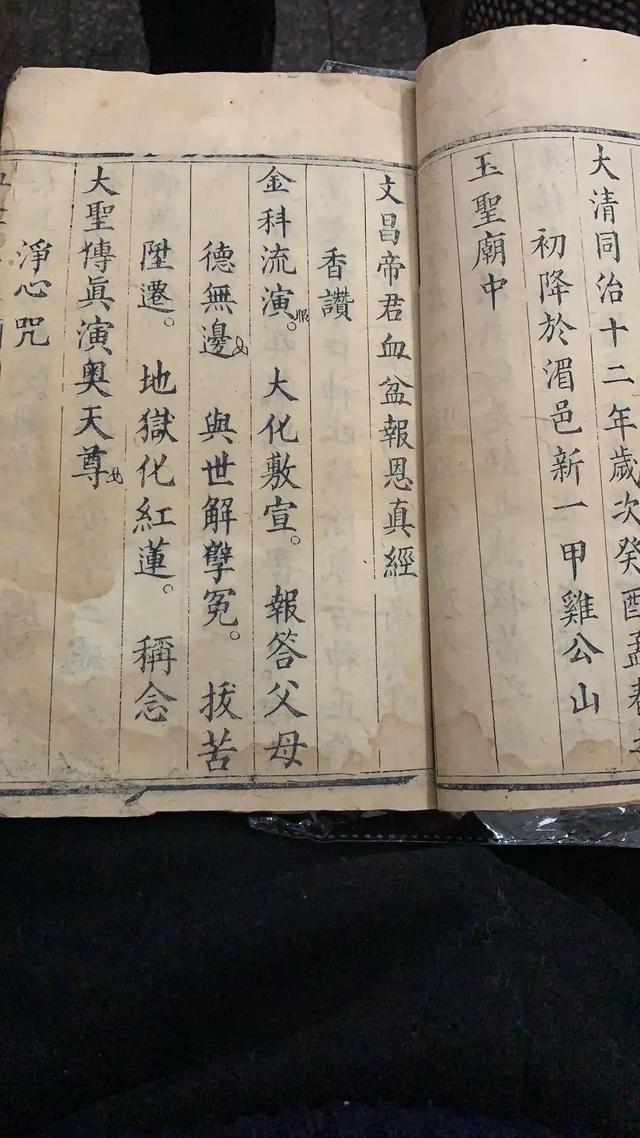 大清同治十二年歲次癸酉孟春
初降於湄邑新一甲雞公山
玉聖廟中
文昌帝君血盆報恩真經
香讚
金科流演。大化敷宣。報答父母
德無邊　與世解孽冤。拔苦
陞遷。地獄化紅蓮。稱念
大聖傳眞演奧天尊
淨心咒